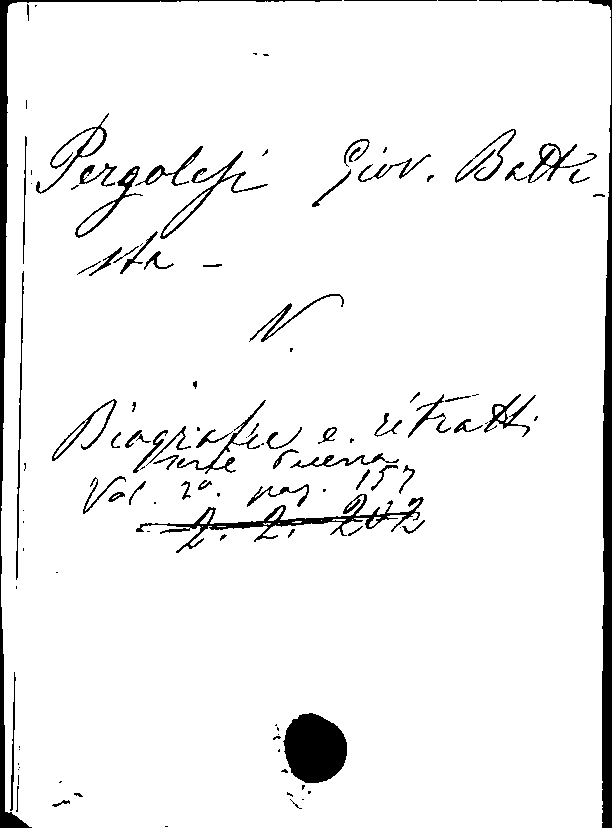 Pergolesi Giov. Batti-
sta -
V.
Biografie e ritratti
Vol. 2o. pag. 157
2. 2. 202